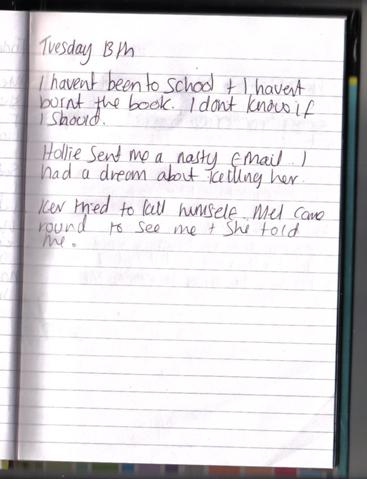 Tuesday 13th
I havent been to school + I havent
burnt the book. I dont know if
I should.
Hollie sent me a nasty Email. I
had a dream about killing her.
Kev tried to kill himself. Mel came
round to see me + she told
me.